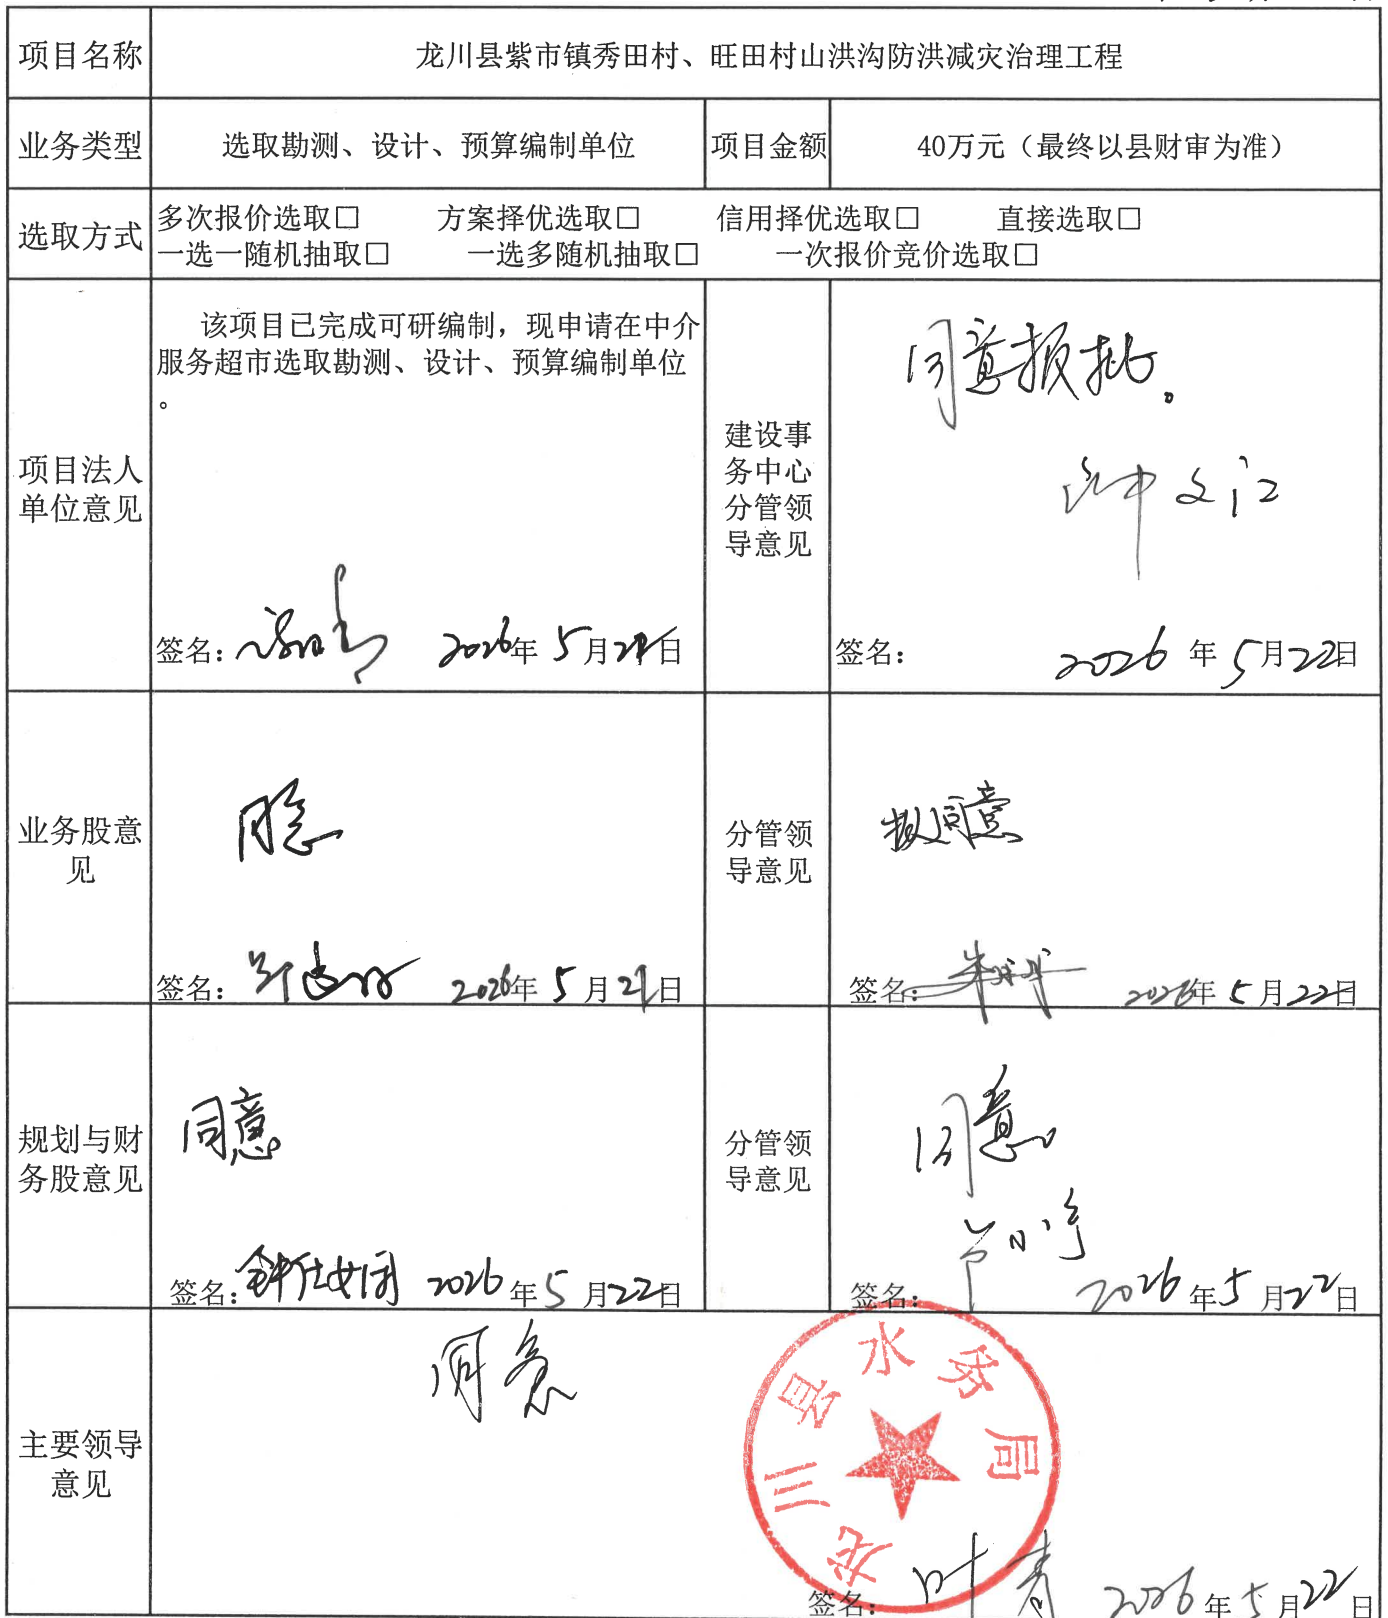 项目名称
龙川县紫市镇秀田村、旺田村山洪沟防洪减灾治理工程
业务类型
选取勘测、设计、预算编制单位
项目金额
40万元（最终以县财审为准）
选取方式
多次报价选取□ 方案择优选取□ 信用择优选取□ 直接选取□
一选一随机抽取□ 一选多随机抽取□ 一次报价竞价选取□
项目法人
单位意见
该项目已完成可研编制，现申请在中介
服务超市选取勘测、设计、预算编制单位
。
签名： 2026年 5月21日
建设事
务中心
分管领
导意见
同意报批。
钟文江
签名： 2026年5月22日
业务股意
见
同意
签名： 2026年5月21日
分管领
导意见
拟同意
签名： 2026年5月22日
规划与财
务股意见
同意
签名： 2026年5月22日
分管领
导意见
同意
签名： 2026年5月22日
主要领导
意见
同意
龙川县水务局
签名：叶青 2026年5月22日